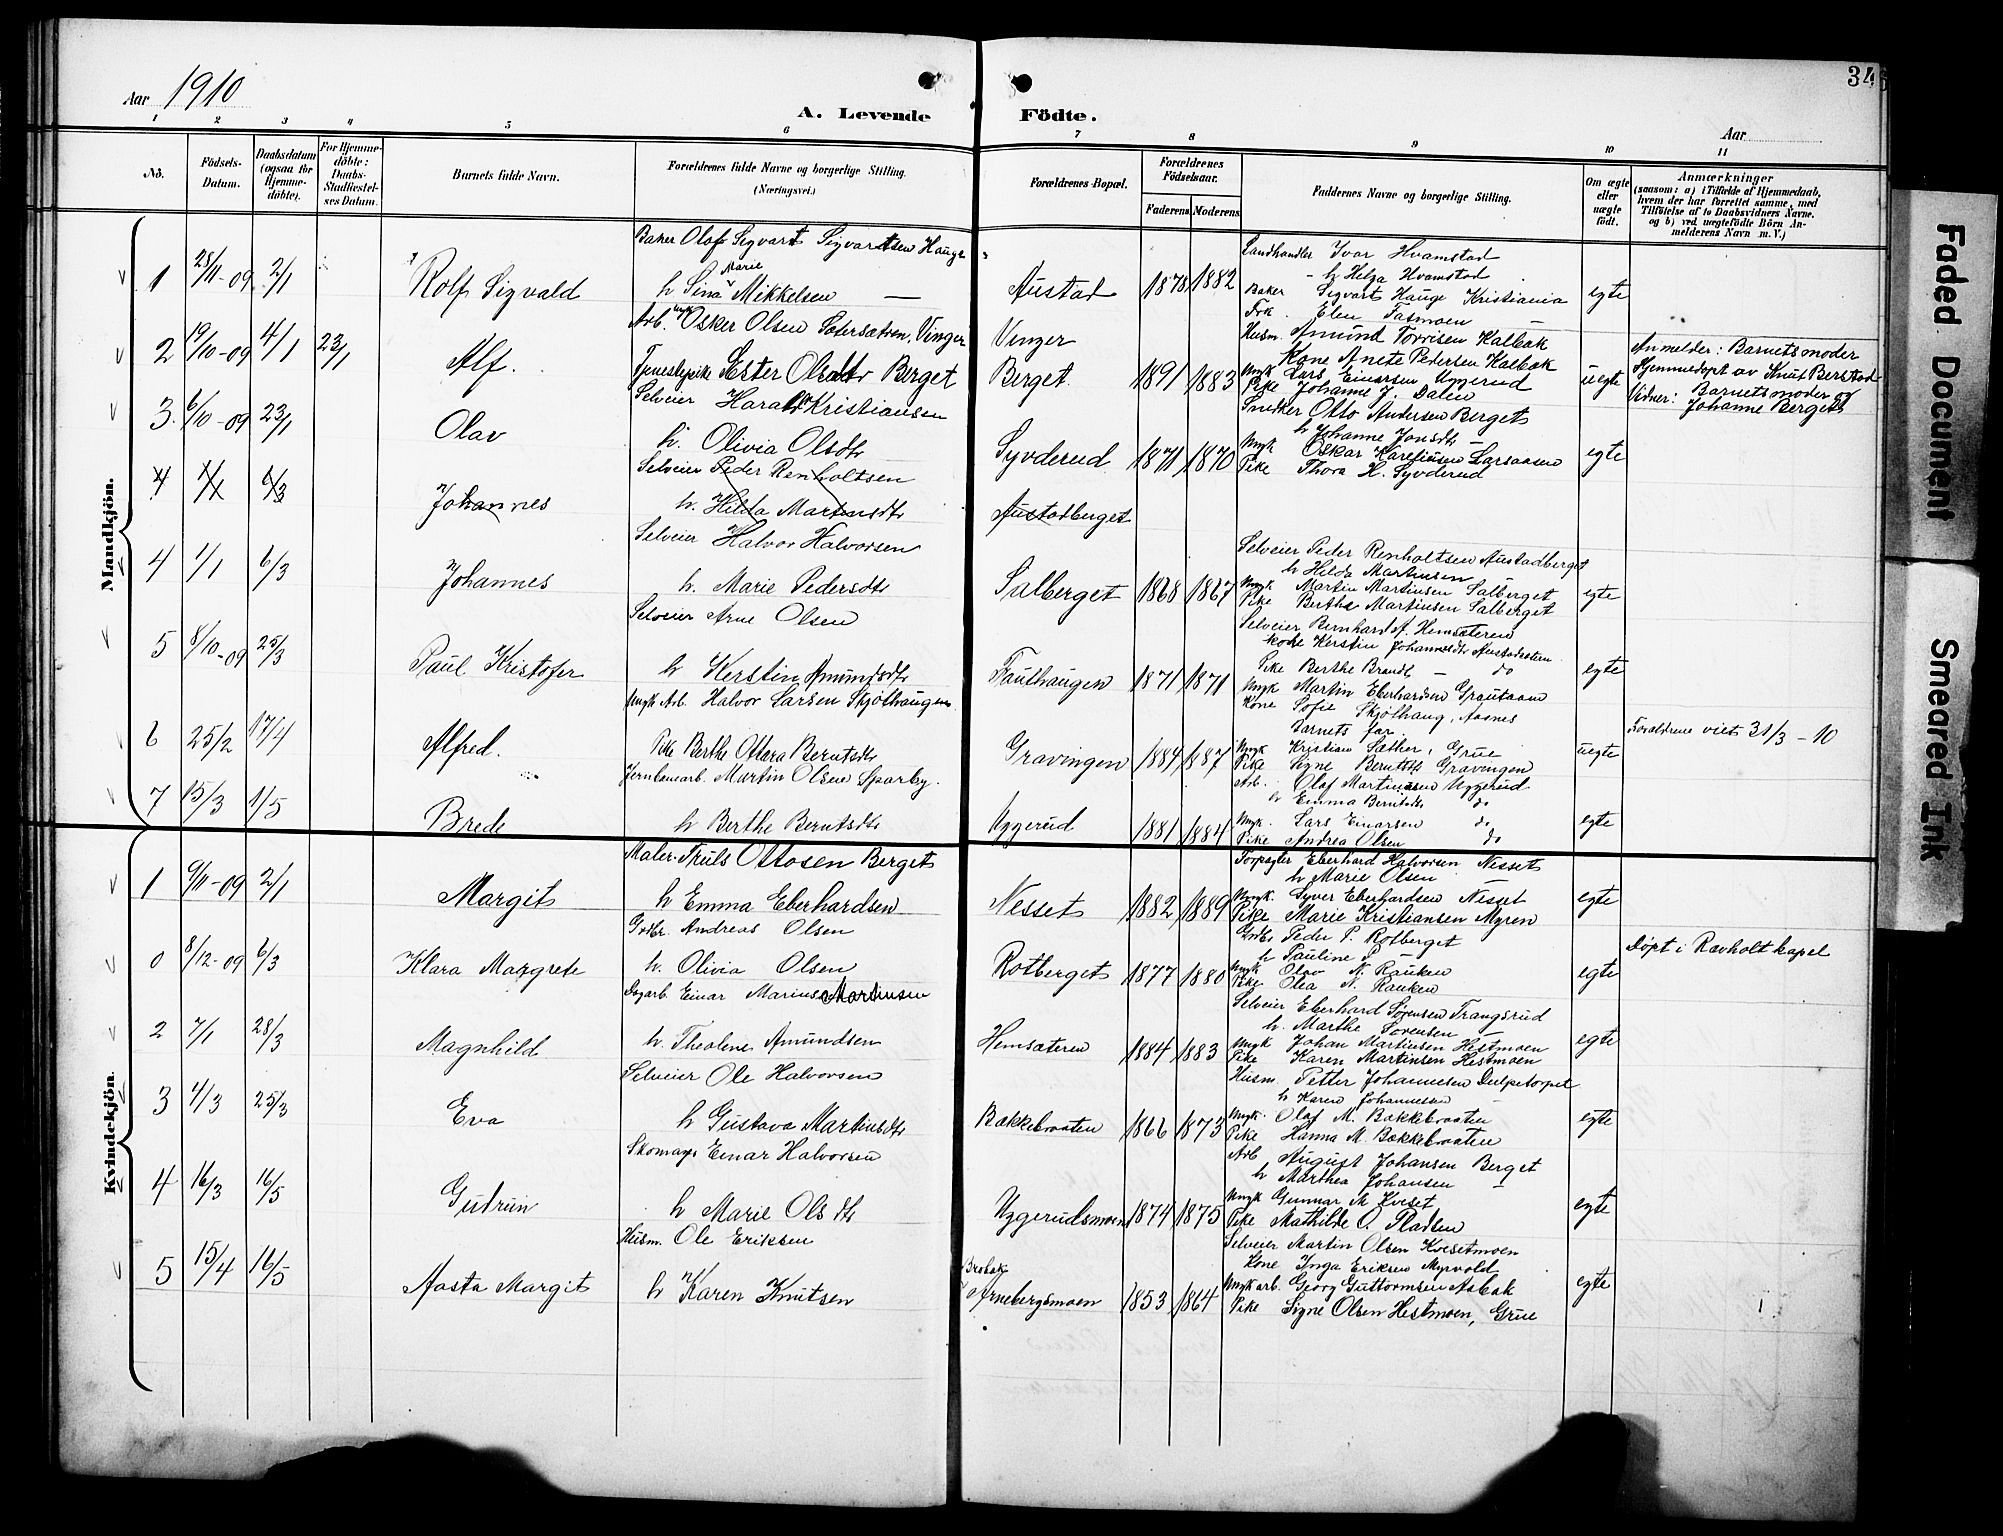 Aar 1910
A. Levende Födte.
Aar
34
1 2 3 4 5 6 7 8 9 10 11
No. Födsels-Datum. Daabsdatum (ogsaa for Hjemme-döbte). For Hjemme-döbte: Daabs-Stadfæstel-ses Datum. Barnets fulde Navn. Forældrenes fulde Navne og borgerlige Stilling. (Næringsvei.) Forældrenes Bopæl. Forældrenes Födselsaar. Faderens Moderens Faddernes Navne og borgerlige Stilling. Om ægte eller uægte født. Anmærkninger (saasom: a) i Tilfælde af Hjemmedaab, hvem der har forrettet samme, med Tilföielse af to Daabsvidners Navne. og b) ved uægtefödte Börn Anmelderens Navn m. V.)
Mandkjön.
Baker Olaf Sigvart Sigvardtsen Hauge
Landhandler Ivar Hvamstad
1 25/11-09 2/1 Rolf Sigvald h Sina Marie Mikkelsen — Austad 1878 1882 egte
- h Helga Hvamstad
Baker Sigvart Hauge Kristiania
Frk. Elen Tasmoen
Arb. Osker Olsen Sætersætren, Vinger Vinger
Husm. Amund Torrisen Kalbak
2 19/10-09 4/1 23/1 Alf. Tjenestepike Ester Olsdtr Berget Berget. 1891 1883 uegte
Kone Anete Pedersen Kalbak
Ungk Lars Einarsen Uggerud
Pike Johanne J. Dalen
Anmelder: Barnets moder
Hjemmedøpt av Knut Berstad
Vidner: Barnets moder og
Johanne Berget
Selveier Harald Kristiansen
Snedker Otto Andersen Berget
3. 6/10-09 23/1 Olav h. Olivia Olsdtr Syvderud 1871 1870 egte
h Johanne Jonsdtr —
Ungk Oskar Kareliusen Larsaasen
Pike Thora H. Syvderud
Selveier Peder Renholtsen
4 1/1 6/3 Johannes h. Hilda Martinsdtr Austadberget
Selveier Halvor Halvorsen
Selveier Peder Renholtsen Austadberget
4 1/1 6/3 Johannes h. Marie Pedersdtr Salberget 1868 1867 egte
h Hilda Martinsen
Ungk Martin Martinsen Salberget
Pike Berthe Martinsen Salberget
Selveier Arne Olsen
Selveier Bernhard A. Hemsæteren
5 8/10-09 25/3 Paul Kristofer h Kerstin Amundsdtr Faulhaugen 1871 1871 egte
kone Kerstin Johannesdtr
Pike Berthe Brandt — do
Ungk Martin Eberhardsen Grautaam
Ungk Arb. Halvor Larsen Skjølhaugen
Kone Sofie Skjølhaug, Aasnes
Barnets far
6 25/2 17/4 Alfred. Pike Berthe Ottara Berntsdtr Gravingen 1884 1887 uegte
Ungk Kristian Sæther, Grue
Pike Signe Berntsdtr Gravingen
Forældrene viet 31/3 - 10
Jernbanearb. Martin Olsen Sparby.
Arb. Olaf Martinsen Uggerud
7 15/3 1/5 Brede h Berthe Berntsdtr Uggerud 1881 1884 egte
h Emma Berntsdtr do
Ungk. Lars Einarsen do
Pike Andrea Olsen do
Kvindekjön.
Maler Truls Ottosen Berget
Forpagter Eberhard Halvorsen Nesset
1 9/11-09 2/1 Margit h Emma Eberhardsen Nesset 1882 1889 egte
h Marie Olsen
Ungk. Syver Eberhardsen Nesset
Pike Marie Kristiansen Myren
Grdbr. Andreas Olsen
Grdbr Peder P. Rotberget
0 8/12-09 6/3 Klara Margrete h. Olivia Olsen Rotberget 1877 1880 egte
h Pauline P —
Ungk Olav N. Rauken
Pike Olea N. Rauken
Døpt i Ravholt kapel
Dagarb. Einar Marius Martinsen
Selveier Eberhard Sørensen Trangsrud
2 7/1 28/3 Magnhild h. Theoline Amundsen Hemsæteren 1884 1883 egte
h. Marthe Sørensen —
Ungk Johan Martinsen Hestmoen
Pike Karen Martinsen Hestmoen
Selveier Ole Halvorsen
Husm Petter Johannesen Dulpetorpet
3 4/3 25/3 Eva h Gustava Martinsdtr Bakkebraaten 1866 1873 egte
h Karen Johannesen —
Ungk. Olaf M. Bakkebraaten
Pike Hanna M. Bakkebraaten
Skomager Einar Halvorsen
Arb August Johansen Berget
4 16/3 16/5 Gudrun h Marie Olsdtr Uggerudsmoen 1874 1875 egte
h Marthea Johansen —
Ungk Gunnar M. Kveset
Pike Mathilde O. Pladsen
Husm. Ole Eriksen
Selveier Martin Olsen Kvesetmoen
5 15/4 16/5 Aasta Margit h Karen Knutsen Brobak Arnebergsmoen 1853 1864 egte
Kone Inga Eriksen Myrvold
Ungk arb. Georg Guttormsen Aabak
Pike Signe Olsen Hestmoen, Grue
Faded Document
Smeared Ink